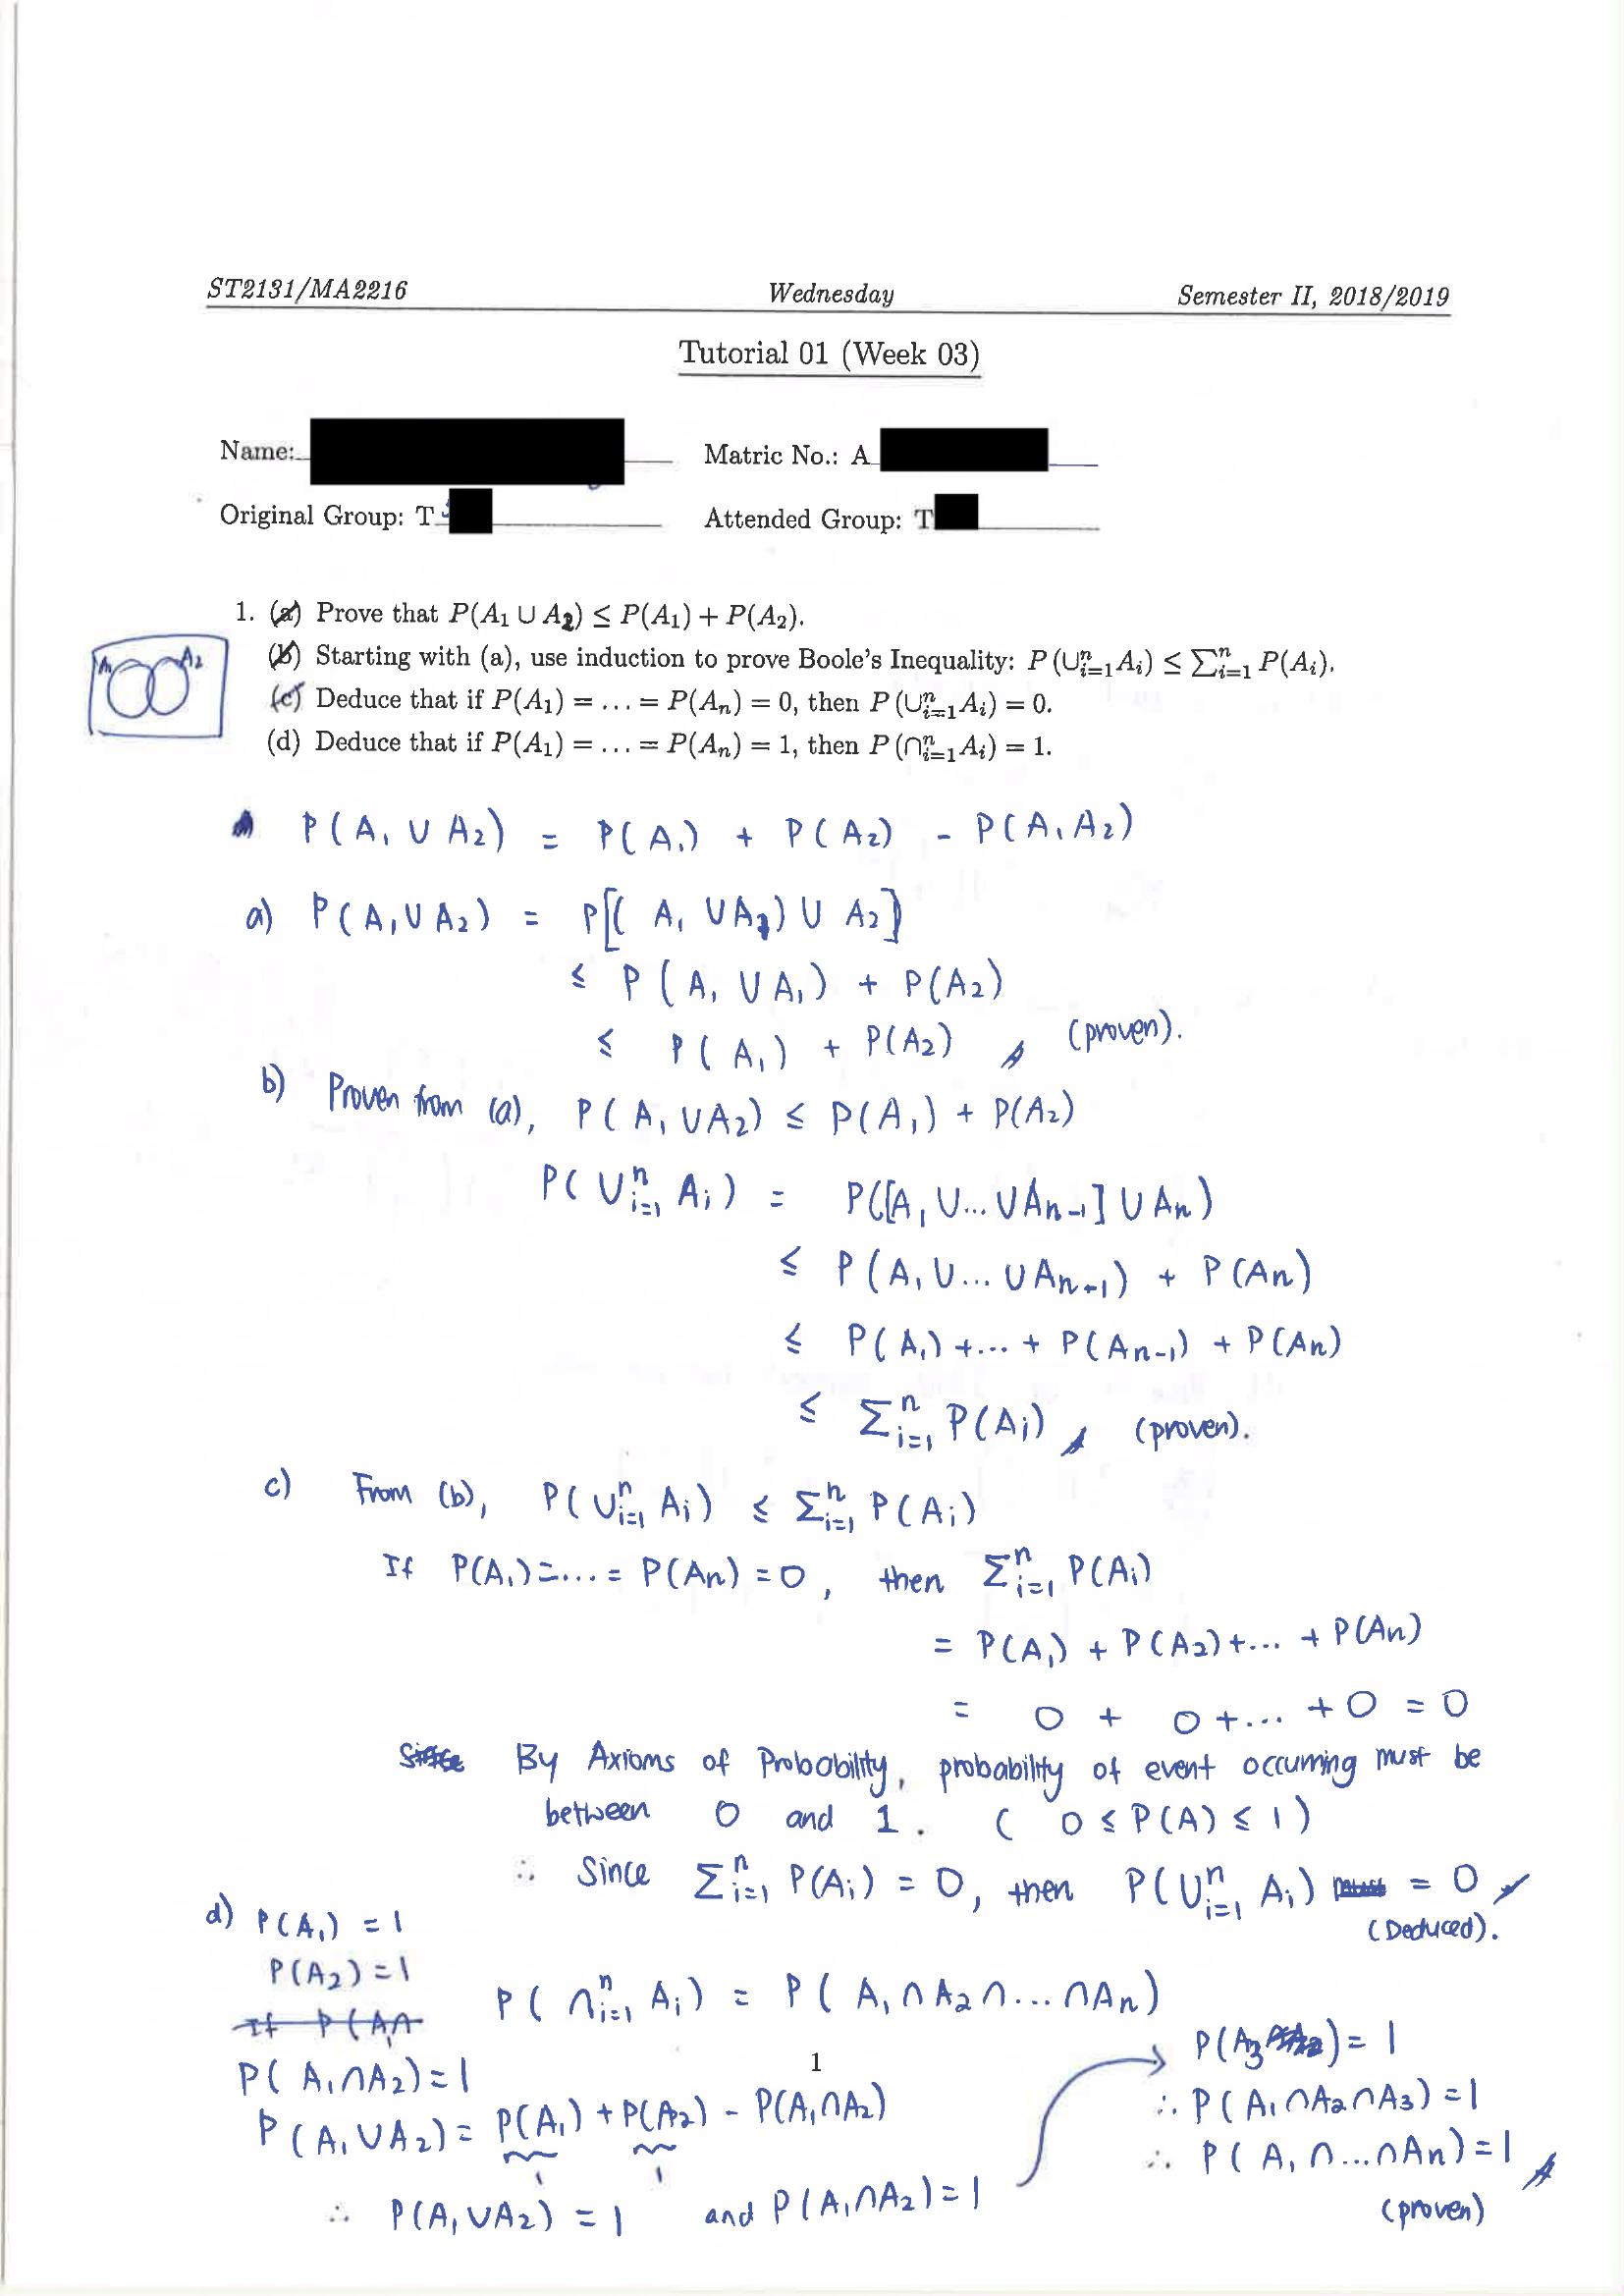 ST2131/MA2216 Wednesday Semester II, 2018/2019
Tutorial 01 (Week 03)
Name: Matric No.: A
Original Group: T Attended Group: T
1. (a) Prove that P(A₁ ∪ A₂) ≤ P(A₁) + P(A₂).
(b) Starting with (a), use induction to prove Boole's Inequality: P(∪ⁿᵢ₌₁Aᵢ) ≤ ∑ⁿᵢ₌₁ P(Aᵢ).
(c) Deduce that if P(A₁) = ... = P(Aₙ) = 0, then P(∪ⁿᵢ₌₁Aᵢ) = 0.
(d) Deduce that if P(A₁) = ... = P(Aₙ) = 1, then P(∩ⁿᵢ₌₁Aᵢ) = 1.
A₁ A₂
P(A₁ ∪ A₂) = P(A₁) + P(A₂) - P(A₁A₂)
a) P(A₁ ∪ A₂) = P[(A₁ ∪ A₁) ∪ A₂]
≤ P(A₁ ∪ A₁) + P(A₂)
≤ P(A₁) + P(A₂) (proven).
b) Proven from (a), P(A₁ ∪ A₂) ≤ P(A₁) + P(A₂)
P(∪ⁿᵢ₌₁ Aᵢ) = P([A₁ ∪ ... ∪ Aₙ₋₁] ∪ Aₙ)
≤ P(A₁ ∪ ... ∪ Aₙ₋₁) + P(Aₙ)
≤ P(A₁) + ... + P(Aₙ₋₁) + P(Aₙ)
≤ ∑ⁿᵢ₌₁ P(Aᵢ) (proven).
c) From (b), P(∪ⁿᵢ₌₁ Aᵢ) ≤ ∑ⁿᵢ₌₁ P(Aᵢ)
If P(A₁) = ... = P(Aₙ) = 0, then ∑ⁿᵢ₌₁ P(Aᵢ)
= P(A₁) + P(A₂) + ... + P(Aₙ)
= 0 + 0 + ... + 0 = 0
Since By Axioms of Probability, probability of event occuring must be
between 0 and 1. ( 0 ≤ P(A) ≤ 1)
∴ Since ∑ⁿᵢ₌₁ P(Aᵢ) = 0, then P(∪ⁿᵢ₌₁ Aᵢ) = 0
(Deduced).
d) P(A₁) = 1
P(A₂) = 1
If P(A₁∩
P(∩ⁿᵢ₌₁ Aᵢ) = P(A₁ ∩ A₂ ∩ ... ∩ Aₙ)
1
P(A₁∩A₂) = 1
P(A₁ ∪ A₂) = P(A₁) + P(A₂) - P(A₁∩A₂)
1 1
∴ P(A₁ ∪ A₂) = 1 and P(A₁∩A₂) = 1
P(A₃) = 1
∴ P(A₁ ∩ A₂ ∩ A₃) = 1
∴ P(A₁ ∩ ... ∩ Aₙ) = 1
(proven)